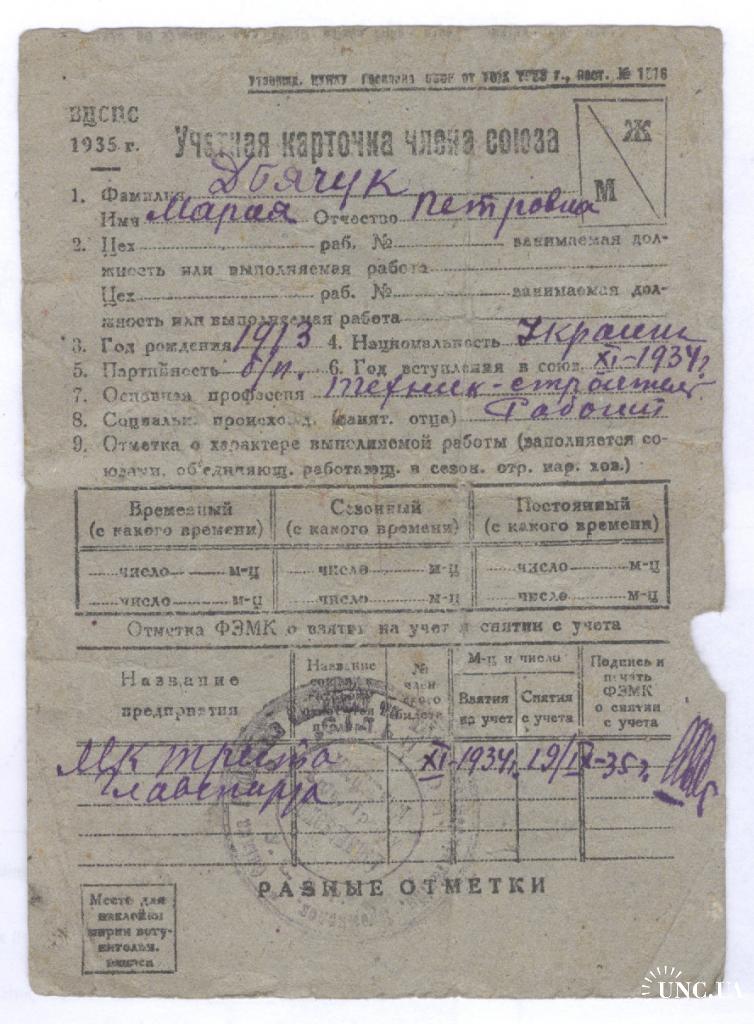 Утвержд. ЦУНХУ Госплана СССР от 1933 г., пост. № 1516
ВЦСПС
1935 г.
Учетная карточка члена союза
Ж
М
1. Фамилия
Имя Мария Отчество Петровна
2. Цех раб. № занимаемая дол-
жность или выполняемая работа
Цех раб. № занимаемая дол-
жность или выполняемая работа
3. Год рождения 1913 4. Национальность Украинк
5. Партийность б/п. 6. Год вступления в союз XI-1934 г.
7. Основная професеия техник-строитель
8. Социальн. происхожд. (занят. отца) Рабочий
9. Отметка о характере выполняемой работы (заполняется со-
юзами, об'единяющ. работающ. в сезон. отр. нар. хоз.)
Временный (с какого времени)
Сезонный (с какого времени)
Постоянный (с какого времени)
число м-ц число м-ц число м-ц
число м-ц число м-ц число м-ц
Отметка ФЗМК о взятии на учет и снятии с учета
Название предприятия
Название
№ член. билета
М-ц и число
Взятия на учет
Снятия с учета
Подпись и печать ФЗМК о снятии с учета
МК треста XI-1934 г. 19/IX-35 г.
РАЗНЫЕ ОТМЕТКИ
Место для
наклейки
марки всту-
пительн.
взноса
UNC.UA